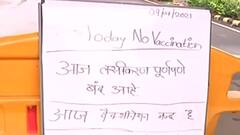 09/04/2021
Today No Vaccination
आज लसीकरण पूर्णपणे
बंद आहे
आज वैक्सीनेशन बन्द है